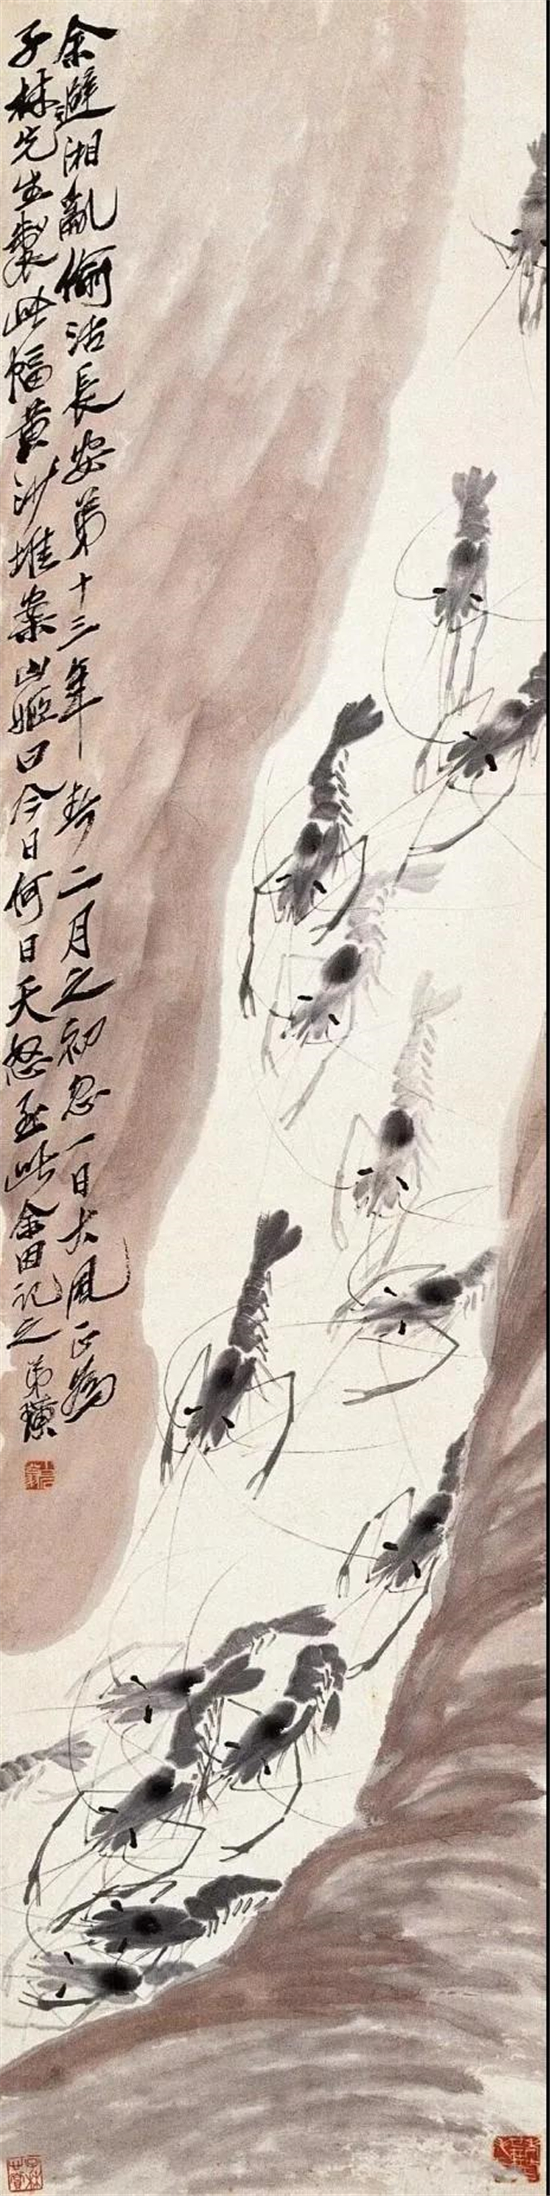 余避湘亂偷活長安第十三年时二月之初忽一日大風正為
子林先生製此幅黄沙堆案山姬曰今日何日天怒至此余因記之弟璜